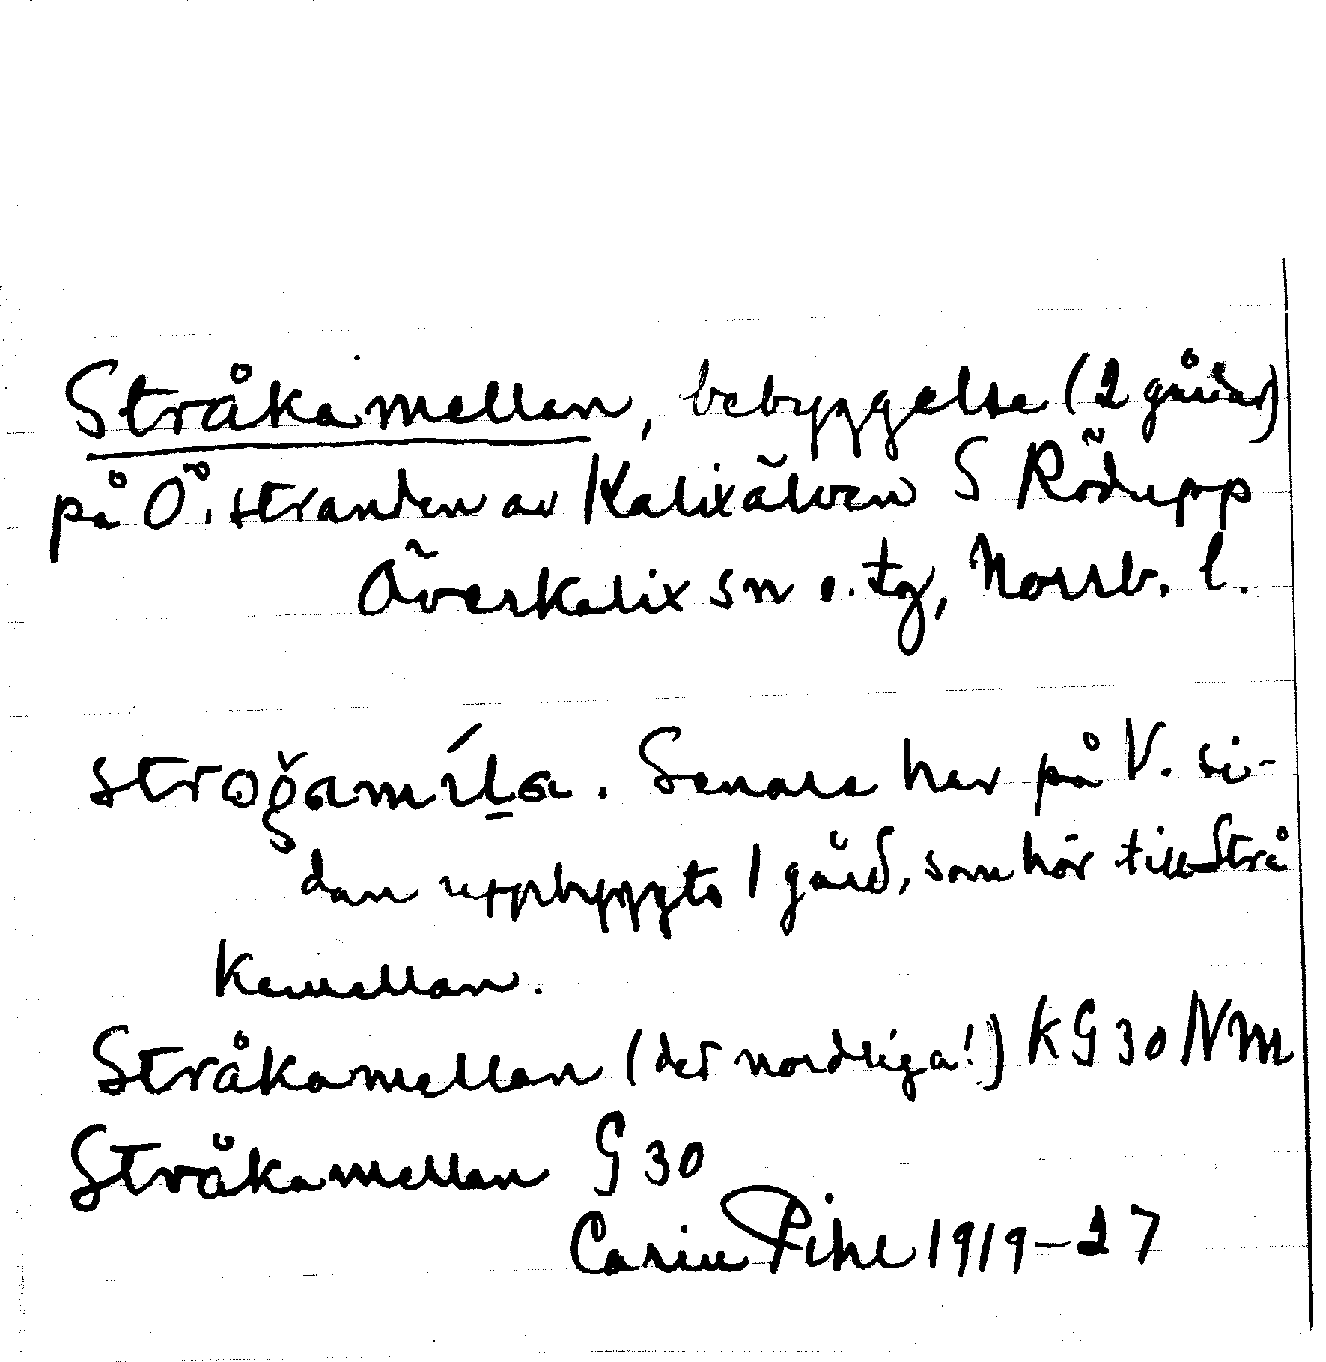 Stråkamellan, bebyggelse (2 gårdar)
på Ö. stranden av Kalixälven S Rödupp
Överkalix sn o. tg, Norrb. l.
Senare har på V. si-
dan uppbyggts 1 gård, som hör till Strå
kamellan.
Stråkamellan (det nordliga!) KG 30 NM
Stråkamellan G 30
Carin Pihl 1919-27